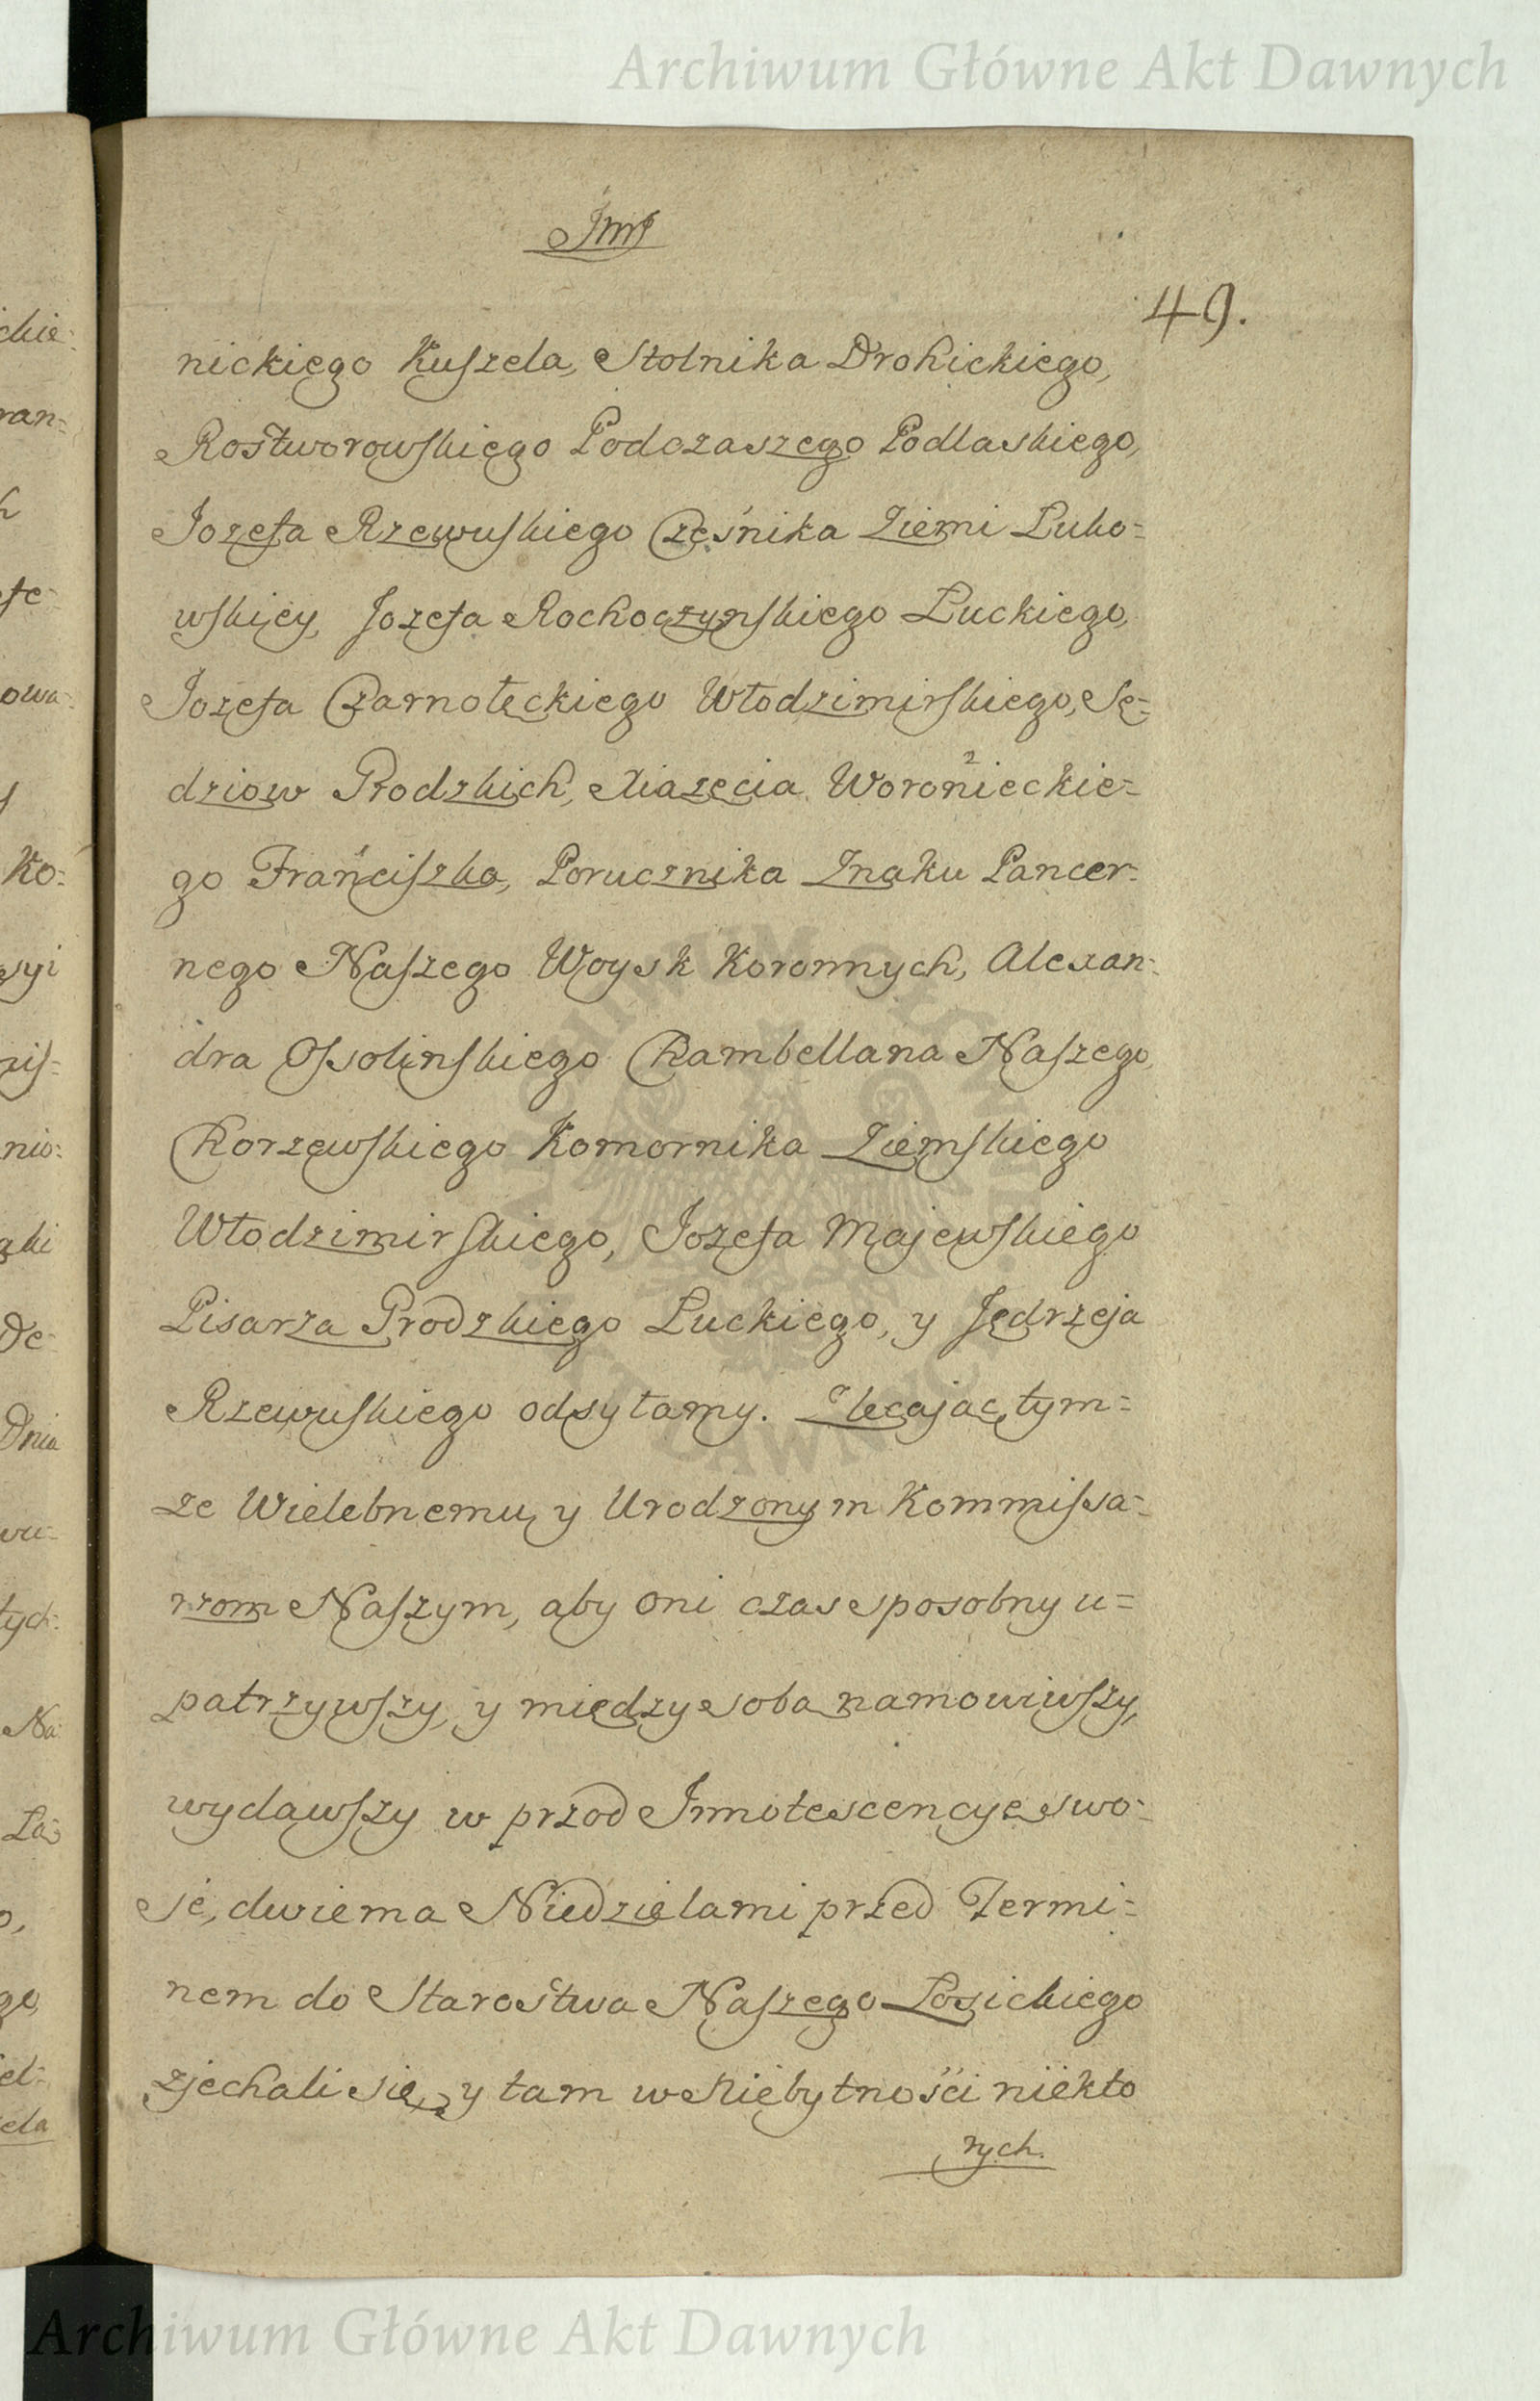 Archiwum Główne Akt Dawnych
Jmś
49.
nickiego Kuszela, Stolnika Drohickiego,
Rostworowskiego Podczaszego Podlaskiego,
Jozefa Rzewuskiego Cześnika Ziemi Luko=
wskiey, Jozefa Rochoczynskiego Luckiego,
Jozefa Czarnołeckiego Włodzimirskiego, Sę=
dziow Grodzkich, Xiazęcia Woronieckie=
go Franciszka, Porucznika Znaku Pancer=
nego Naszego Woysk Koronnych, Alexan=
dra Ossolinskiego Chambellana Naszego,
Chorzewskiego Komornika Ziemskiego
Włodzimirskiego, Jozefa Majewskiego
Pisarza Grodzkiego Luckiego, y Jędrzeja
Rzewuskiego odsyłamy. Zlecając tym=
ze Wielebnemu y Urodzonym Kommissa=
rzom Naszym, aby oni czas sposobny u=
patrzywszy, y między soba namowiwszy,
wydawszy w przod Innotescencye swo=
je, dwiema Niedzielami przed Termi=
nem do Starostwa Naszego Łosickiego
zjechali się, y tam w Niebytności niekto
rych.
Archiwum Główne Akt Dawnych